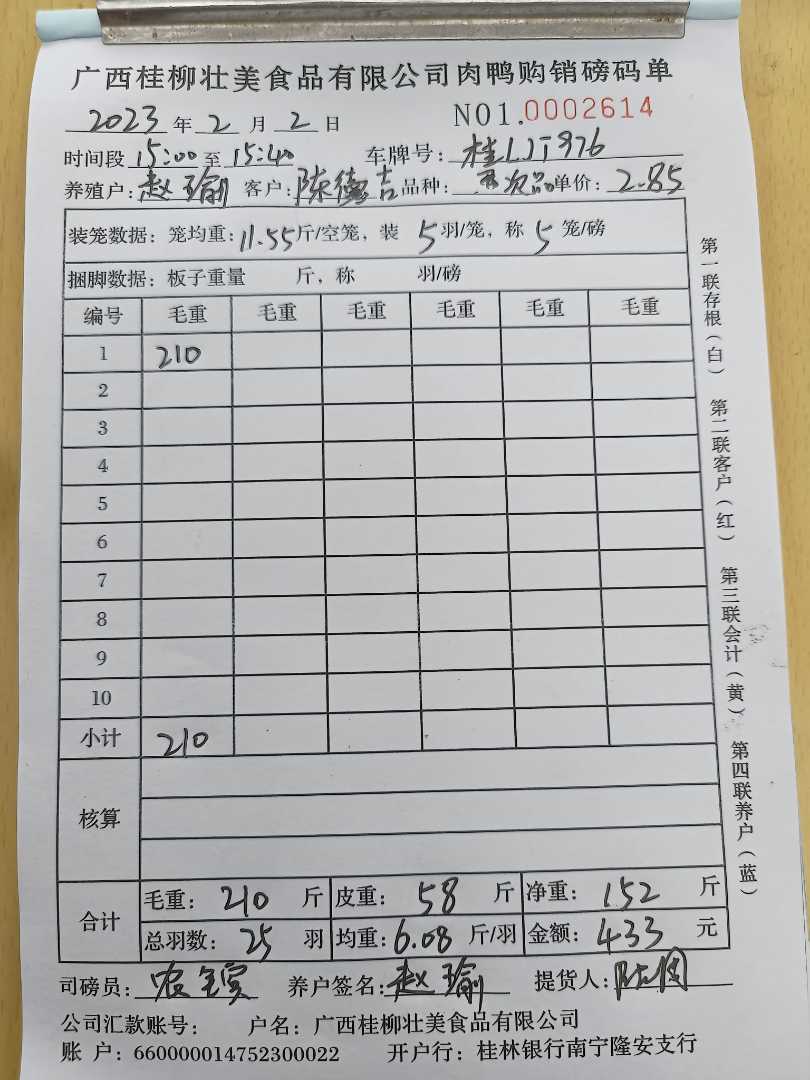 广西桂柳壮美食品有限公司肉鸭购销磅码单
2023 年 2 月 2 日 NO1.0002614
时间段 15:00 至 15:40 车牌号: 桂
养殖户: 赵瑜 客户: 陈德吉 品种: 次品 单价: 2.85
装笼数据: 笼均重: 11.55 斤/空笼, 装 5 羽/笼, 称 5 笼/磅
捆脚数据: 板子重量 斤, 称 羽/磅
编号 毛重 毛重 毛重 毛重 毛重 毛重
1 210
2
3
4
5
6
7
8
9
10
小计 210
核算
合计 毛重: 210 斤 皮重: 58 斤 净重: 152 斤
总羽数: 25 羽 均重: 6.08 斤/羽 金额: 433 元
司磅员: 农 养户签名: 赵瑜 提货人: 陈
公司汇款账号: 户名: 广西桂柳壮美食品有限公司
账 户: 660000014752300022 开户行: 桂林银行南宁隆安支行
第一联存根(白) 第二联客户(红) 第三联会计(黄) 第四联养户(蓝)